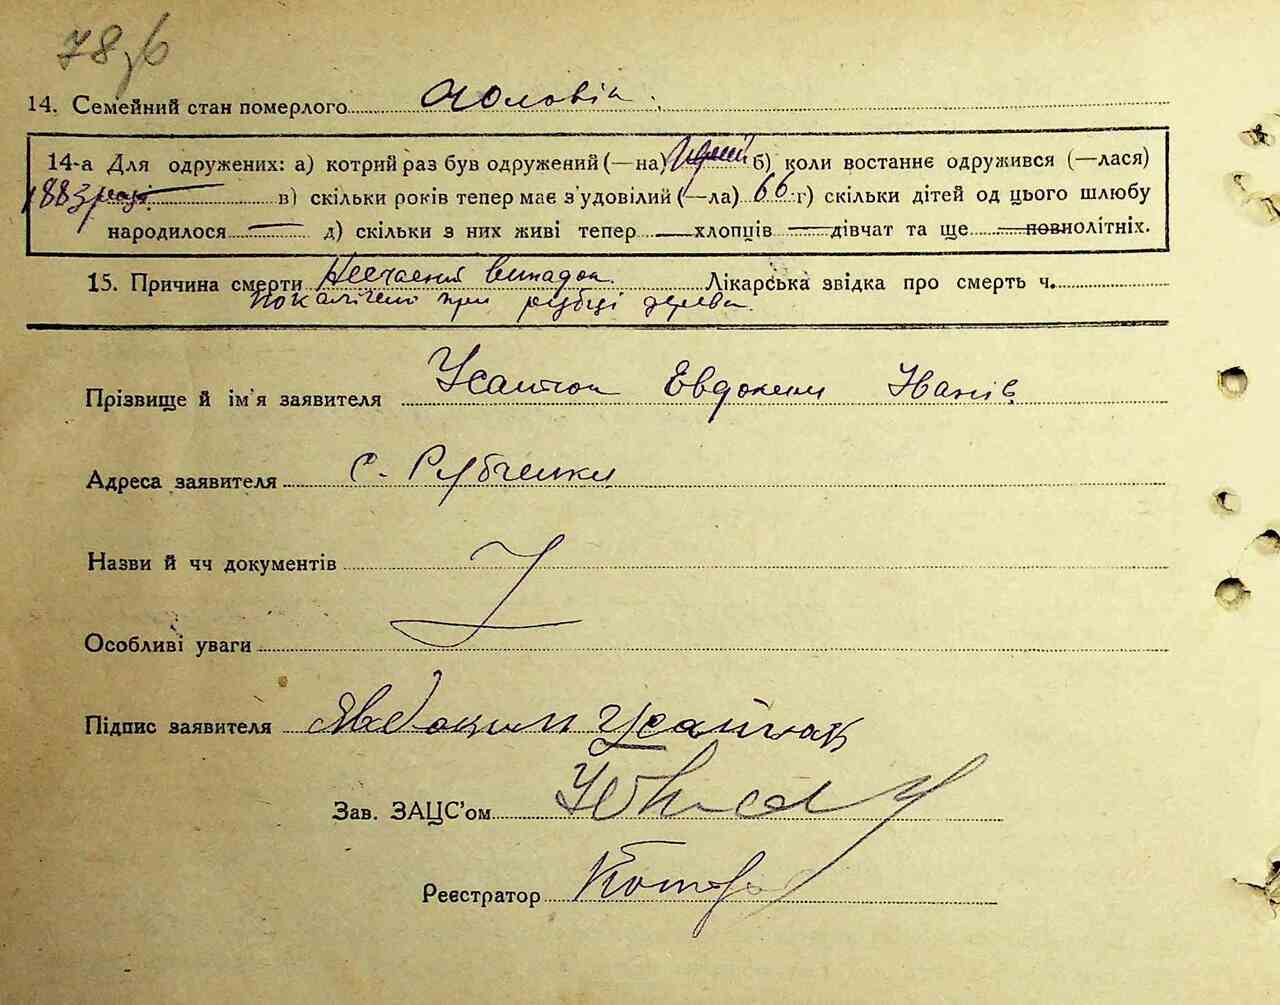 78зб
14. Семейний стан померлого Чоловік
14-а Для одружених: а) котрий раз був одружений (—на) Перший б) коли востаннє одружився (—лася)
1883 році в) скільки років тепер має з'удовілий (—ла) 66 г) скільки дітей од цього шлюбу
народилося — д) скільки з них живі тепер — хлопців — дівчат та ще — повнолітніх.
15. Причина смерти Несчасний випадок Лікарська звідка про смерть ч.
покалічено при рубці дерева
Прізвище й ім'я заявителя Усатюк Евдоким Іванів
Адреса заявителя с. Рубченки
Назви й чч документів
Особливі уваги
Підпис заявителя Явдоким
Зав. ЗАЦС'ом
Реєстратор